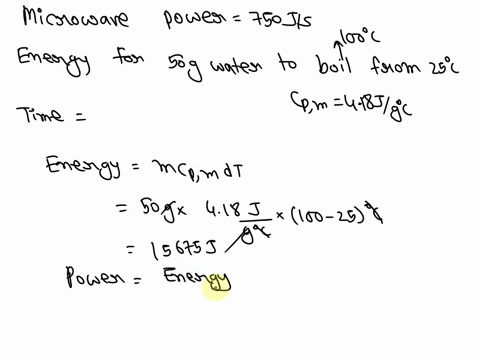 Microwave power = 750 J/s
100°C
Energy for 50g water to boil from 25°C
Cp,m = 4.18 J/g°C
Time =
Energy = m Cp,m dT
= 50g × 4.18 J/g°C × (100-25)°C
= 15675 J
Power = Energy